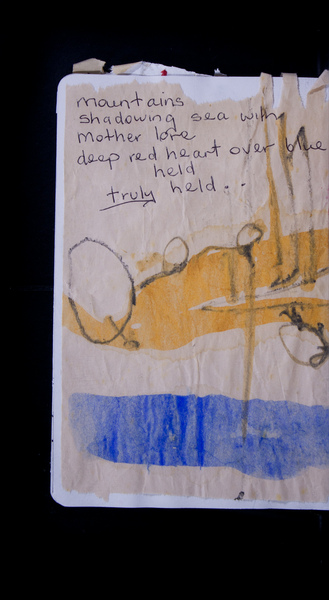 mountains
shadowing sea with
mother love
deep red heart over blue
held
truly held..